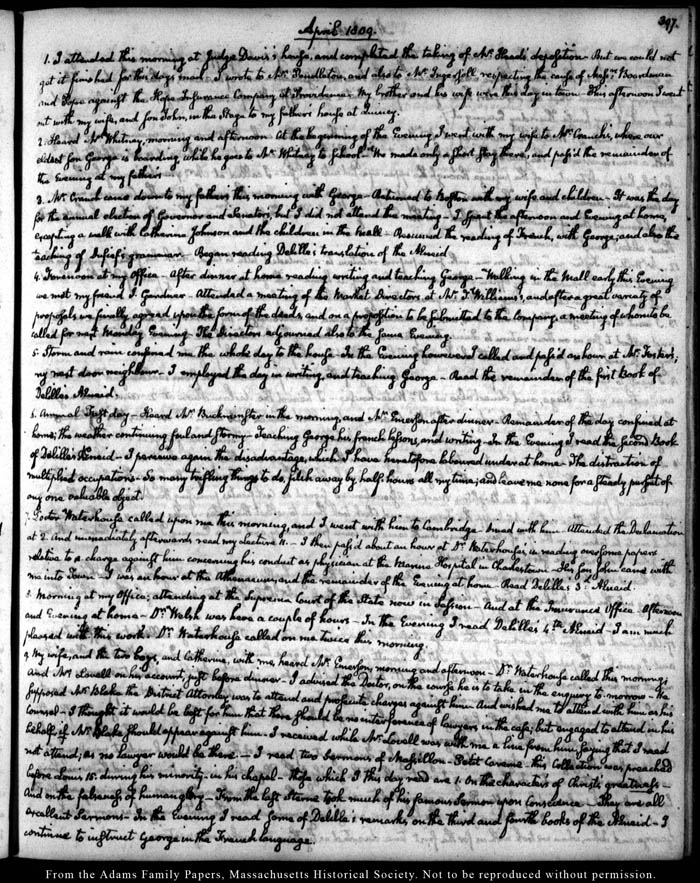 397.
April 1809.
1. I attended this morning at Judge Davis's house, and completed the taking of Mr. Head's deposition. But we could not
get it finished for this day's mail. I wrote to Mr. Pendleton, and also to Mr. Ingersoll respecting the cause of Messrs. Boardman
and Pope against the Hope Insurance Company at Providence. My brother and his wife were this day in town. This afternoon I went
out with my wife, and son John, in the Stage to my father's house at Quincy.
2. Heard Mr. Whitney, morning and afternoon. At the beginning of the Evening I went with my wife to Mr. Cranch's, where our
eldest son George is boarding, while he goes to Mr. Whitney to School. We made only a short stay there, and pass'd the remainder of
the Evening at my father's.
3. Mr. Cranch came down to my father's this morning with George. Returned to Boston with my wife and children. It was the day
for the annual election of Governor and Senators, but I did not attend the meeting. I spent the afternoon and Evening at home,
excepting a walk with Catherine Johnson and the children in the Mall. Resumed the reading of French, with George, and also the
teaching of grammar. Began reading Delille's translation of the Aeneid.
4. Forenoon at my office. After dinner at home reading writing and teaching George. Walking in the Mall early this Evening
we met my friend J. Gardner. Attended a meeting of the Market Directors at Mr. T. Williams's, and after a great variety of
proposals we finally agreed upon the form of the deeds, and on a proposition to be submitted to the Company, a meeting of whom to be
called for next Monday Evening. The Directors adjourned also to the same Evening.
5. Storm and rain confined me the whole day to the house. In the Evening however I called and pass'd an hour at Mr. Foster's;
my next door neighbour. I employed the day in writing, and teaching George. Read the remainder of the first Book of
Delille's Aeneid.
6. Annual Fast day. Heard Mr. Buckminster in the morning, and Mr. Emerson after dinner. Remainder of the day confined at
home; the weather continuing foul and stormy. Teaching George his french lessons, and writing. In the Evening I read the second Book
of Delille's Aeneid. I perceive again the disadvantage, which I have heretofore laboured under at home. The distraction of
multiplied occupations. So many trifling things to do, filch away by half hours all my time, and leave me none for a steady pursuit of
any one valuable object.
7. Doctor Waterhouse called upon me this morning, and I went with him to Cambridge. Dined with him. Attended the Declamation
at 2. And immediately afterwards read my lecture 11. I then pass'd about an hour at Dr. Waterhouse's, in reading over some papers
relative to a charge against him concerning his conduct as physician at the Marine Hospital in Charlestown. His son John came with
me into Town. I was an hour at the Athenaeum, and the remainder of the Evening at home. Read Delille's 3d. Aeneid.
8. Morning at my Office; attending at the Supreme Court of the State now in Session. And at the Insurance Office. Afternoon
and Evening at home. Dr. Welsh was here a couple of hours. In the Evening I read Delille's 4th. Aeneid. I am much
pleased with this work. Dr. Waterhouse called on me twice this morning.
9. My wife, and the two boys, and Catherine, with me, heard Mr. Emerson, morning and afternoon. Dr. Waterhouse called this morning,
and Mr. Lovell on his account, just before dinner. I advised the Doctor, on the course he is to take in the enquiry to-morrow. He
supposed Mr. Blake the District Attorney was to attend and prosecute charges against him. And wished me to attend with him as his
Counsel. I thought it would be best for him that there should be no interference of lawyers in the case; but engaged to attend in his
behalf if Mr. Blake should appear against him. I received while Mr. Lovell was with me a line from him, saying that I need
not attend; as no lawyer would be there. I read two Sermons of Massillon. Petit Careme. This Collection was preached
before Louis 15. during his minority in his chapel. Those which I this day read are 1. On the characters of Christ's greatness.
And on the falseness of human glory. From the last Sterne took much of his famous Sermon upon Conscience. They are all
excellent Sermons. In the Evening I read some of Delille's remarks on the third and fourth books of the Aeneid. I
continue to instruct George in the French language.
From the Adams Family Papers, Massachusetts Historical Society. Not to be reproduced without permission.